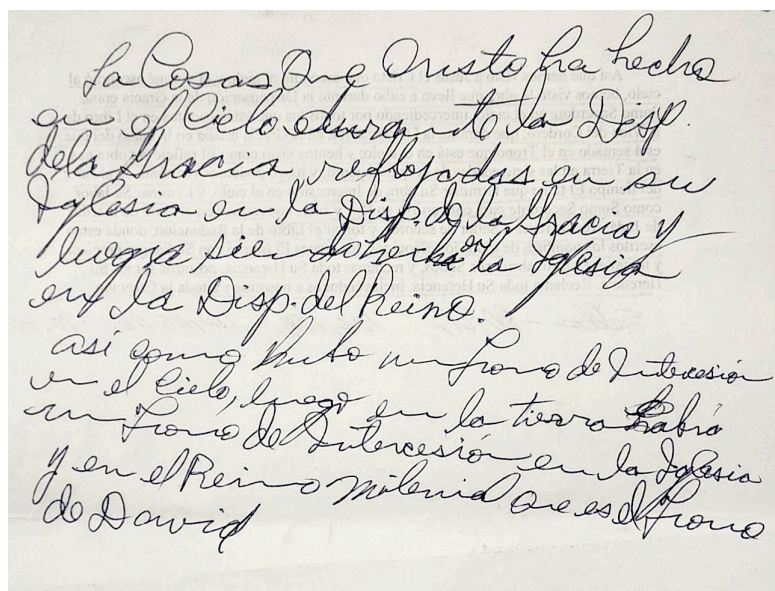 La Cosas Que Cristo ha hecho
en el Cielo durante la Disp.
de la Gracia, reflejadas en su
Iglesia en la Disp. de la Gracia y
luego siendo hecha en la Iglesia
en la Disp. del Reino.
así como hubo un Trono de Intercesión
en el Cielo, luego en la tierra habrá
un Trono de Intercesión en la Iglesia
y en el Reino milenial que es el Trono
de David